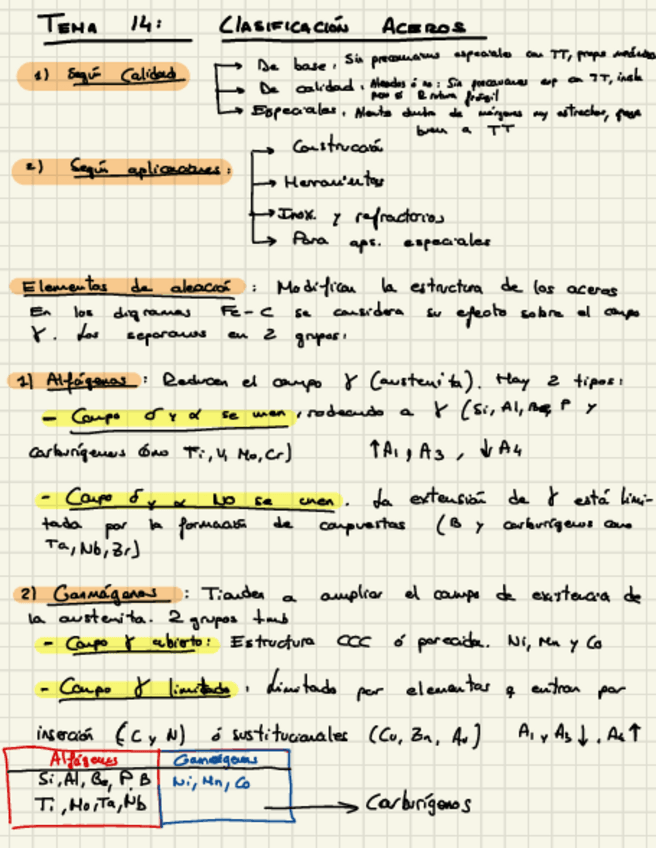 TEMA 14: CLASIFICACIÓN ACEROS
1) Según Calidad
De base. Sin precauciones especiales con TT, props
De calidad. Aleados ó no: Sin precauciones esp con TT,
frágil
Especiales. dentro de márgenes my estrechos,
bien a TT
2) Según aplicaciones:
Construcción
Herramientas
Inox. y refractorios
Para aps. especiales
Elementos de aleación: Modifican la estructura de los aceros
En los digramas Fe-C se considera su efecto sobre el campo
γ. Los separamos en 2 grupos:
1) Alfágenos: Reducen el campo γ (austenita). Hay 2 tipos:
- Campo σ y α se unen, rodeando a γ (Si, Al, Be, P y
carburígenos como Ti, V, Mo, Cr) ↑A1, A3, ↓A4
- Campo σ y α NO se unen. La extensión de γ está limi-
tada por la formación de compuestos (B y carburígenos como
Ta, Nb, Zr)
2) Gammágenos: Tienden a ampliar el campo de existencia de
la austenita. 2 grupos tmb
- Campo γ abierto: Estructura CCC ó parecida. Ni, Mn y Co
- Campo γ limitado: Limitado por elementos q entran por
inserción (C y N) ó sustitucionales (Cu, Zn, Au) A1 y A3 ↓, A4 ↑
Alfágenos Gammágenos
Si, Al, Be, P, B Ni, Mn, Co
Ti, Mo, Ta, Nb → Carburígenos